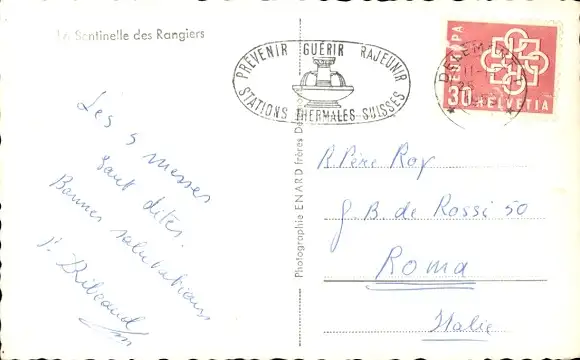 La Sentinelle des Rangiers
PRÉVENIR GUÉRIR RAJEUNIR
STATIONS THERMALES SUISSES
DELÉMONT
EUROPA
30 HELVETIA
Les 5 messes
sont dites.
Bonnes salutations
Photographie ENARD frères
R. Père Roy
G. B. de Rossi 50
Roma
Italie